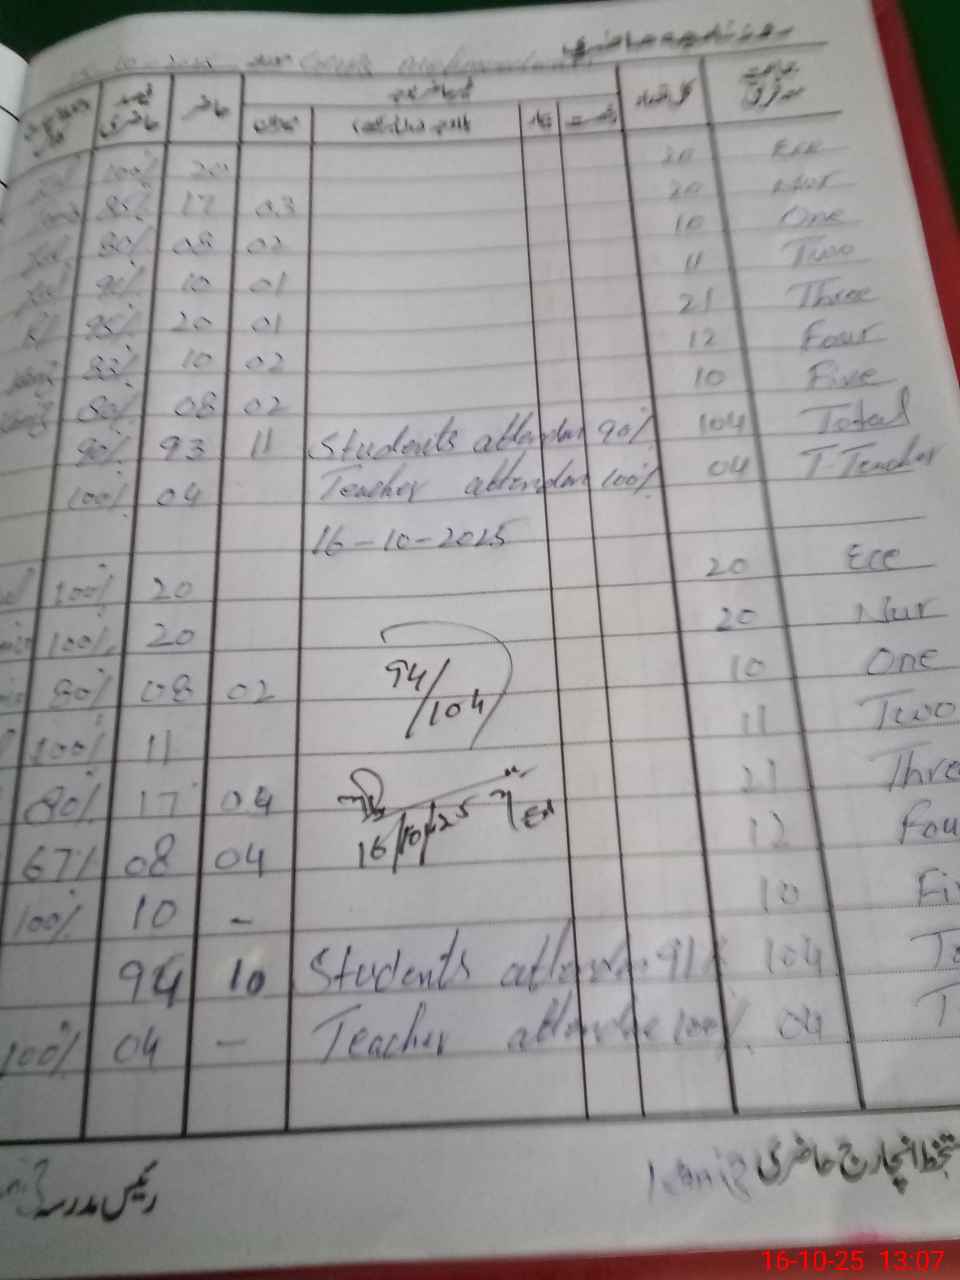 روزنامچہ حاضری
جماعت غیر حاضر حاضر فیصد حاضری
کل تعداد رخصت بیمار
Ece 20 20 100%
Nur 20 03 17 85%
One 10 02 08 80%
Two 11 01 10 90%
Three 21 01 20 95%
Four 12 02 10 83%
Five 10 02 08 80%
Total 104 Students attendan 90% 11 93 90%
T-Teacher 04 Teacher attendan 100% 04 100%
16-10-2025
Ece 20 20 100%
Nur 20 20 100%
One 10 02 08 80%
94/104
Two 11 11 100%
Thre 21 04 17 80%
16/10/25
Fou 12 04 08 67%
Fi 10 - 10 100%
To 104 Students attendan 91% 10 94
T 04 Teacher attendce 100% - 04 100%
دستخط انچارج حاضری
رئیس مدرسہ
16-10-25 13:07